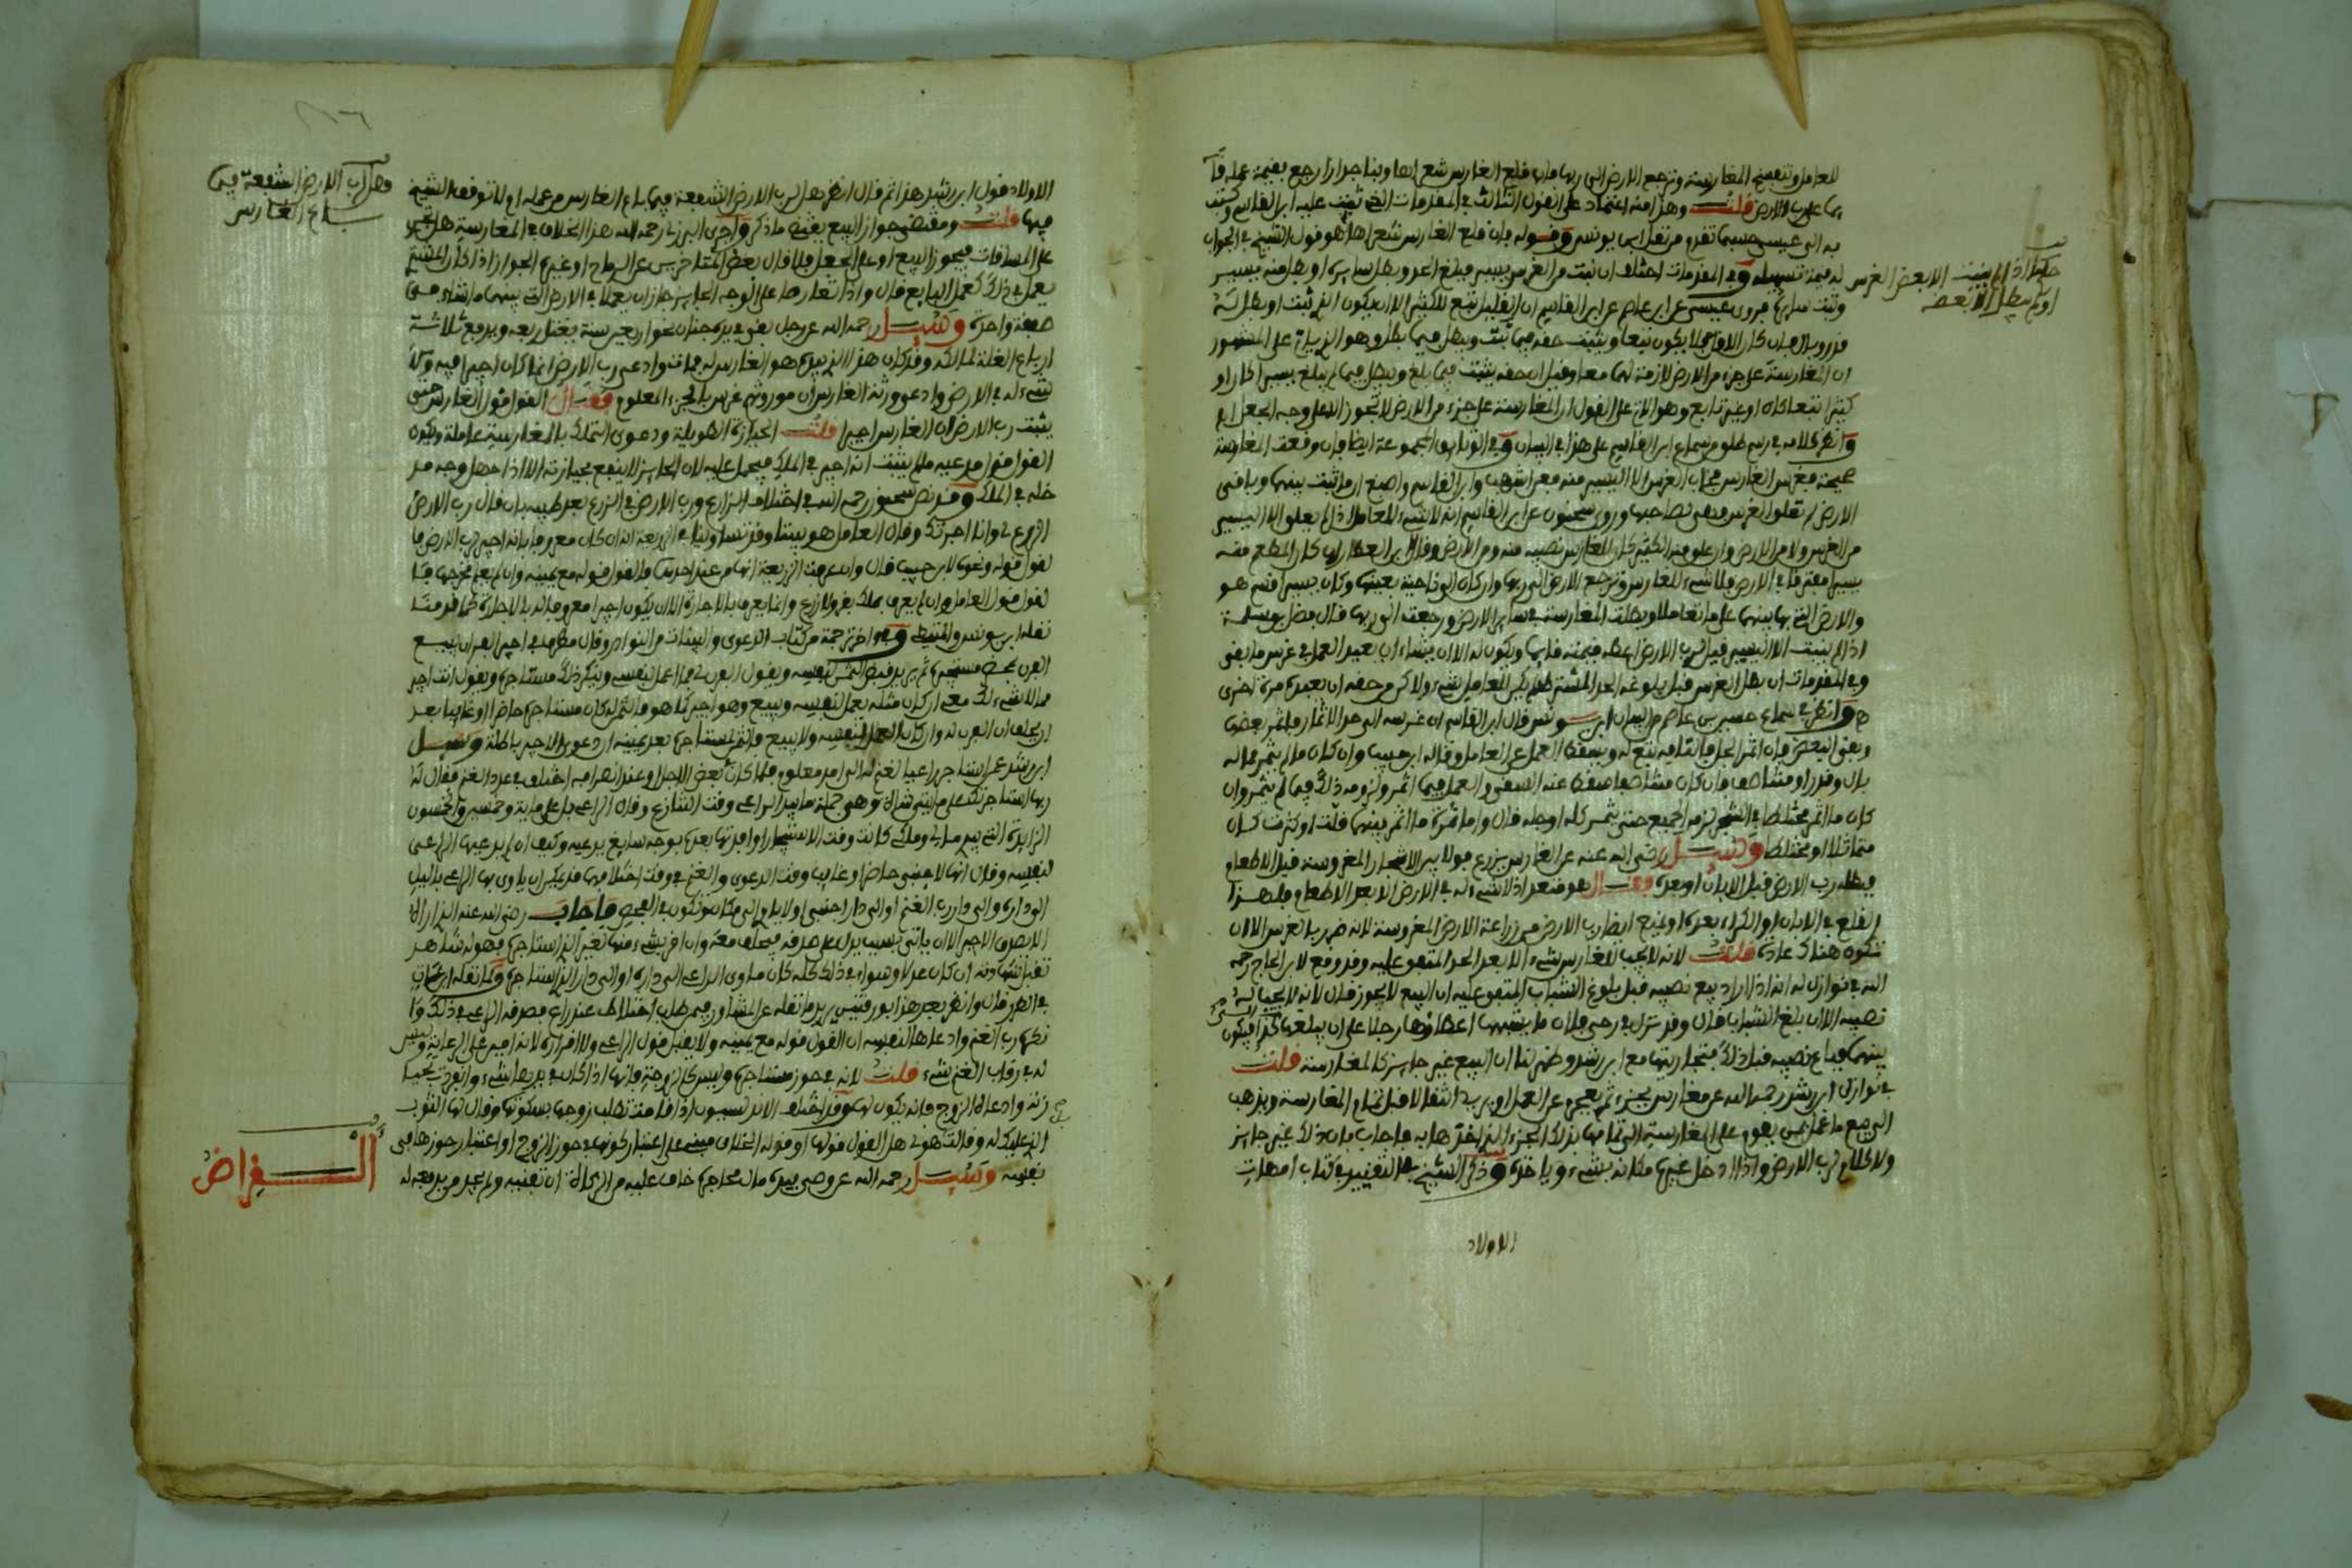 للعامل وتنفسخ المغارسة وترجع الارض الى ربها فان قلع الغارس شعراها وبنا جدارا رجع بقيمة عمله
بها على رب الارض قلت وهذا منه اعتماد على القول الثالث في المقدمات الخ عليه ابن القاسم وكتب
به الى عيسى حسبما تقدم من نقل ابن يونس وقوله فان قلع الغارس شعراها هو قول الشيخ في الجواب
له قيمة وفي المقدمات اختلف ان نبت من الغرس يسير فبلغ الحد وبطل سايره او بطل منه يسير
حكم اذا لم ينبت الا بعض الغرس
او لم يبطل الا بعضه
ونبت سايره فروى عيسى عن ابن القاسم ان القليل تبع للكثير الا ان يكون الذي نبت او بطل له
قدر وبال فان كان الاقل لا يكون تبعا ويثبت حقه فيما نبت ويبطل فيما بطل وهو على المشهور
ان المغارسة على جزء من الارض لازمة لهما معا وقيل ان حقه يثبت فيما بلغ ويبطل فيما لم يبلغ يسيرا كان او
كثيرا تبعا كان او غير تابع وهو الات على القول ان المغارسة على جزء من الارض لا تجوز الا على وجه الجعل
وانظر كلامه في رسم من سماع ابن القاسم على هذا في البيان وفي الوثائق المجموعة ايضا فان وقعت المغارسة
صحيحة فغرس الغارس الغرس الا اليسير منه فعن اشهب وابن القاسم واصبغ ان ما نبت بينهما وباقى
الارض لم تعلق الغرس فيها لصاحبها وروى سحنون عن ابن القاسم انه لا شيء للعامل اذا لم يعلق الا اليسير
من الغرس ولا من الارض وان علق منه الكثير كان للغارس نصيبه منه ومن الارض وقال ابن العطار ان كان المطعم منه
يسيرا مفترقا في الارض فلا شيء للغارس وترجع الارض الى ربها وان كان الى ناحية بعينها وكان يسيرا قسم هو
والارض التي بها بينهما على ما تعاملا وبطلت المغارسة في ساير الارض ورجعت الى ربها قال فضل بن سلمة
اذا لم ينبت الا اليسير قيل لرب الارض اعطه قيمته قايما ويكون له الا ان يشاء ان يعيد العمل في غرس ما بقي
وفي المقدمات ان بطل الغرس قبل بلوغه الحد المشترط لم يكن للعامل شيء ولا كن من حقه ان يعيده مرة اخرى
وانظر في سماع من البيان ابن يونس قال ابن القاسم ان غرسه الى حد الاثمار فاثمر بعض
وبقي البعض فان اثمر الجل فالباقي تبع له ويسقط العمل عن العامل وقاله ابن حبيب وان كان ما لم يثمر له
بال وقدر او متناصف فان كان متناصفا سقط عنه السقي والعمل فيما اثمر ولزمه ذلك فيما لم يثمر وان
كان ما اثمر مختلطا في الشجر لزمه الجميع حتى يثمر كله او جله قال وما ثمرة ما اثمر بينهما قلت او كثرت كان
متماثلا او مختلطا وسئل رضي الله عنه عن الغارس يزرع فولا بين الاشجار المغروسة قبل الاطعام
فيطلبه رب الارض قبل الابان او بعده فقال هو متعد اذ لا شيء له في الارض الا بعد الاطعام فله هذا
القلع في الابان او الكراء بعده ويمنع ايضا رب الارض من زراعة الارض المغروسة لانه ضرر بالغرس الا ان
تكون هناك عادة قلت لانه لا يجب للغارس شيء الا بعد الحد المتفق عليه وقد وقع لابن الحاج رحمه
الله في نوازل له انه اذا اراد بيع نصيبه قبل بلوغ الشباب المتفق عليه ان البيع لا يجوز قال لانه لا يجب له
نصيبه الا ان بلغ الشباب قال وقد نزل في رحى فلان ما يشبهها اعطاوها رجلا على ان يبلغها كذا فيكون
بينهما فباع نصيبه قبل ذلك فتجاريتها مع ابن رشد وظهر لنا ان البيع غير جايز كالمغارسة قلت
في نوازل ابن رشد رحمه الله عن مغارس بجزء ثم يعجز عن العمل او يريد انتقالا قبل تمام المغارسة ويذهب
الى بيع ما عمل ممن يقوم على المغارسة الى تمامها بذلك الجزء الذي اخذها به فاجاب بان ذلك غير جايز
ولا كلام لرب الارض واذا ادخل غيره مكانه بشيء وياخذه وذكر الشيخ في التقييد في كتاب امهات
الاولاد
الاولاد قول ابن رشد هذا ثم قال انظر هل لرب الارض الشفعة فيما باع الغارس من عمله ام لا توقف الشيخ
هل لرب الارض الشفعة فيما
باع الغارس
فيها قلت ومقتضى جواز البيع يقتضي ما ذكره واجرى البرزلي رحمه الله هذا الخلاف في المغارسة هل تجرى
على المساقات فيجوز البيع او على الجعل فلا قال بعض المتاخرين عن ابن الحاج وغيره الجواز اذا كان المشترى
يعمل في ذلك كعمل البايع قال واذا تعاملا على الوجه الجايز جاز ان يعملا في الارض التي بينهما ما شاء في
صفقة واحدة وسئل رحمه الله عن رجل بقي في يده جنان نحو اربعين سنة يغتل ربعه ويدفع ثلاثة
ارباع الغلة لمالكه وقد كان هذا الذي بيده هو الغارس له فمات وادعى رب الارض انما كان اجيرا فيه ولا
شيء له في الارض وادعى ورثة الغارس ان موروثهم غرس بالجزء المعلوم فقال القول قول الغارس حتى
يثبت رب الارض ان الغارس اجير قلت الحيازة الطويلة ودعوى التملك بالمغارسة عاملة وكون
القول قول مدعيه ما لم يثبت انه اجير في الملك فيحمل عليه لان الحايز لا ينتفع بحيازته الا اذا جهل وجه مد
خله في الملك وقد نص سحنون رحمه الله في اختلاف الزارع ورب الارض في الزرع بعد طيبه بان قال رب الارض
الزرع لي وانا اجرتك وقال العامل هو بيننا وقد تساوينا في الزريعة انه ان كان معروفا بانه اجير لرب الارض فا
لقول قوله ونحوه لابن حبيب قال وان عرفت الزريعة انها من عند احدهما فالقول قوله مع يمينه وان لم يعلم مخرجها فا
لقول قول العامل وان لم يعرف بملك بقر ولا زرع وانما يعرف بالاجارة الا ان يكون اجيرا معروفا له بالاجارة كما قدمنا
نقله ابن يونس والمتيطي وفي اخر ترجمة من كتاب الدعوى والبينات من النوادر وقال مطرف في اجير الفران يبيع
الفرن بمحضر مستاجره ثم يريد قبض الثمن لنفسه ويقول الفرن لي وانا اعمل لنفسي وينكر ذلك مستاجره ويقول انت اجير
فلا شيء لك فيه ان كان مثله يعمل لنفسه ويبيع وهو اجير كما هو فالثمن له كان مستاجره حاضرا او غايبا بعد
ان يحلف ان الفرن له وان كان لا يعمل لنفسه ولا يبيع فالثمن لمستاجره بعد يمينه ان دعوى الاجير باطلة وسئل
ابن رشد عمن استاجر راعيا لغنم له الى امد معلوم فلما كان بعض الاجل او عند انصرامه اختلف في عدد الغنم فقال له
ربها استاجرتك على مايتي شاة وهي جملة ما بيد الراعي وقت التنازع وقال الراعي بل على ماية وخمسين والخمسون
الزايدة التي بيدي مالي وملكي كانت وقت الاستيجار او افدتها بعده بوجه سايغ يدعيه وكيف ان لم يدعها الراعي
لنفسه وقال انها لاجنبي حاضر او غايب وقت الدعوى والغنم في وقت اختلافهما قد يمكن ان ياوى بها الراعي بالليل
الى داره والى دار رب الغنم او الى دار اجنبي او لا ياوى الى مكان وتكون في الفحص فاجاب رضي الله عنه الذي اراه
الا يصدق الاجير الا ان ياتي بسبب يدل على صدقه فيحلف معه وان اقر بشيء منها لغير الذي استاجره فهو له شاهد
تقبل شهادته ان كان عدلا وسواء في ذلك كله كان ماوى الراعي الى داره او الى دار الذي استاجره وكما نقله ابن عات
في الطرر قال وانظر بعد هذا بورقتين يريد ما نقله عن المشاور فيمن طلب اختلاط عند راع فصدقه الراعي في ذلك وا
نكره رب الغنم وادعاها لنفسه ان القول قوله مع يمينه ولا يقبل قول الراعي ولا اقراره لانه امين على الرعاية وليس
له في رقاب الغنم شيء قلت لانه في حوز مستاجره وليس كالزوجة فانها اذا كان في يدها شيء وانفردت بحيا
زته وادعاه الزوج فانه يكون لها وقد اختلف الاندلسيون اذا قامت تطلب زوجها بكسوتها وقال لها الثوب
الذي عليك لي وقالت هو لي هل القول قولها او قوله الخلاف مبني على اعتبار كونها في حوز الزوج او اعتبار حوزها في
نفسه وسئل رحمه الله عن وصي بيده مال لمحاجره خاف عليه من الزكاة ان تفنيه ولم يجد من يدفعه له
القراض